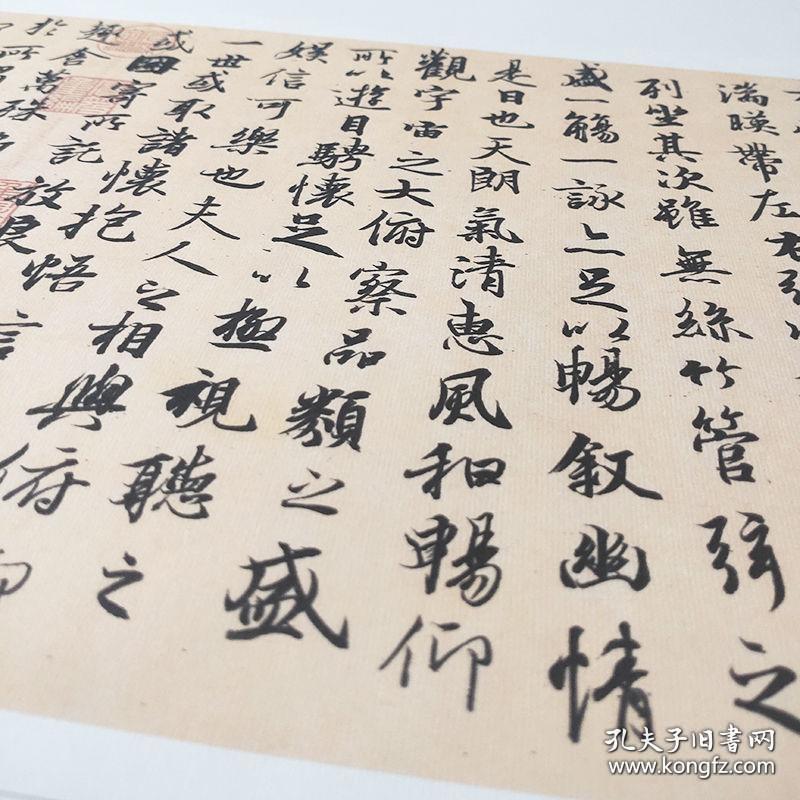 湍暎帶左右引
列坐其次雖無絲竹管弦之
盛一觴一詠亦足以暢叙幽情
是日也天朗氣清惠風和暢仰
觀宇宙之大俯察品類之盛
所以遊目騁懷足以極視聽之
娛信可樂也夫人之相與俯
一世或取諸懷抱悟言
或因寄所託放浪
趣舍萬殊
於所
孔夫子旧书网
www.kongfz.com